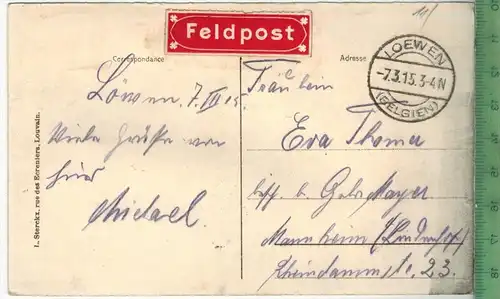 Feldpost
Correspondance
Adresse
LOEWEN
-7.3.15.3-4N
(BELGIEN)
Löwen 7. III 15.
Viele Grüsse von
hier
Michael.
Fräulein
Eva Thoma
Gebr Mayer
Mannheim (Lindenhof)
Rheindammstr. 23.
L. Sterckx, rue des Ecreniers, Louvain.